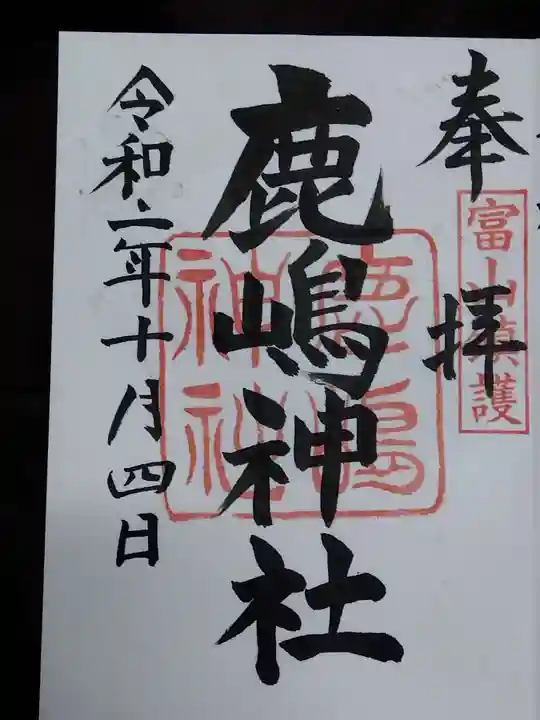 奉拝
富山鎮護
鹿嶋神社
鹿嶋神社
令和二年十月四日